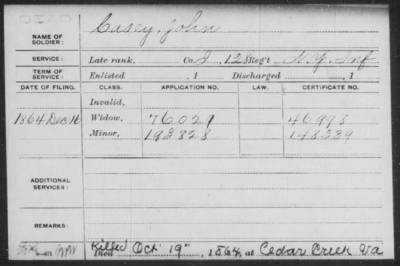 Casey, John
NAME OF SOLDIER:
SERVICE: Late rank, Co. I, 128 Reg't N.Y. Inf
TERM OF SERVICE: Enlisted , 1 Discharged , 1
DATE OF FILING. CLASS. APPLICATION NO. LAW. CERTIFICATE NO.
Invalid,
1864 Dec 16 Widow, 76029 46998
Minor, 193828 148339
ADDITIONAL SERVICES:
REMARKS:
Killed Oct 19", 1864, at Cedar Creek Va
Died